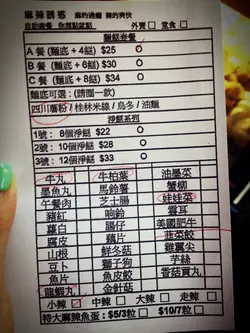 麻辣誘惑 麻的過癮 辣的爽快
自助套餐 你話點就點 外賣 □ 堂食 □
麵餸套餐
A 餐 (麵底 + 4餸) $25 O
B 餐 (麵底 + 6餸) $30 O
C 餐 (麵底 + 8餸) $34 O
麵底可選 : (請圈一款)
四川薯粉 / 桂林米線 / 烏冬 / 油麵
淨餸系列
1號 : 8個淨餸 $22 O
2號 : 10個淨餸 $28 O
3號 : 12個淨餸 $33 O
牛丸 牛柏葉 油墨菜
墨魚丸 馬鈴薯 蟹柳
午餐肉 芝士腸 娃娃菜
豬紅 响鈴 雲耳
蘿白 腸仔 美國肥牛
腐皮 藕片 韭菜餃
山根 鮮冬菇 雞翼尖
豆卜 獅子狗 芋絲
魚片 魚皮餃 香菇貢丸
龍蝦丸 金針菇
小辣 □ 中辣 □ 大辣 □ 走辣 □
特大麻辣魚蛋 : $5/3粒 □ $10/7粒 □